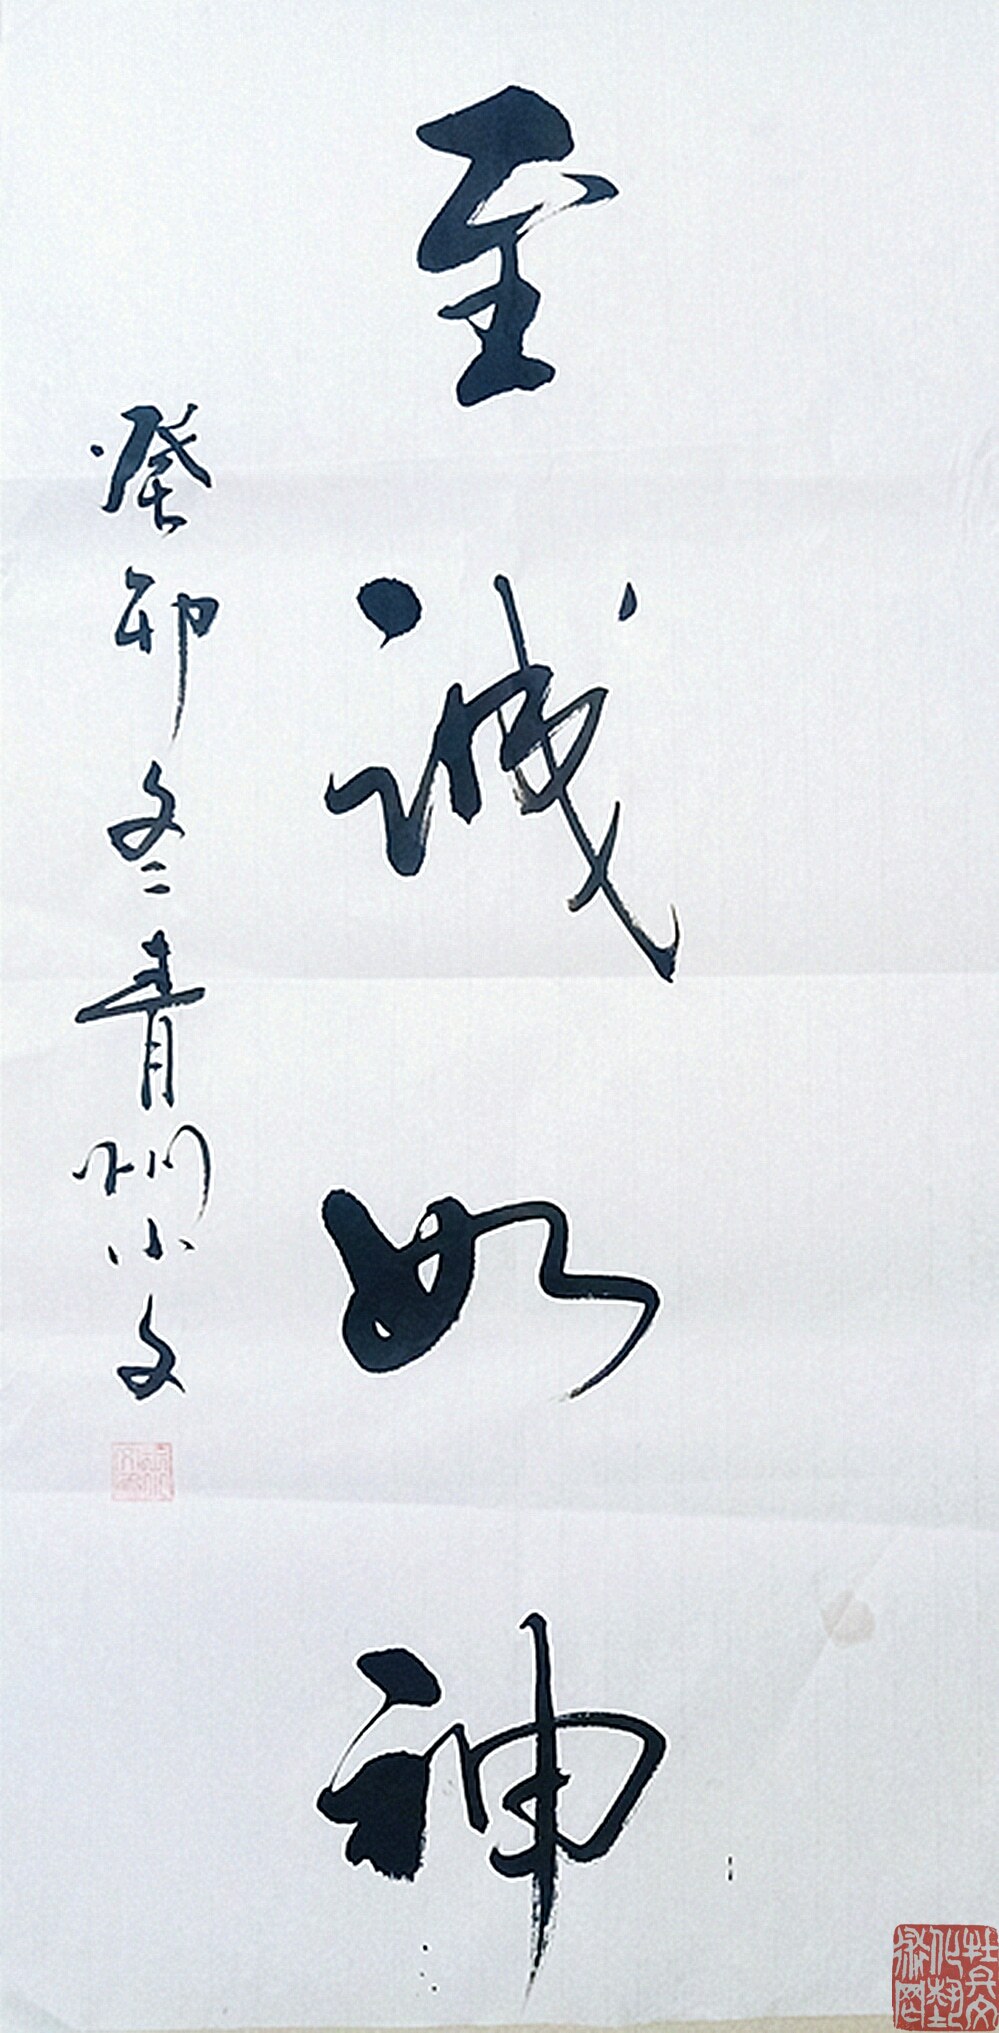 至诚如神
癸卯冬青州小文